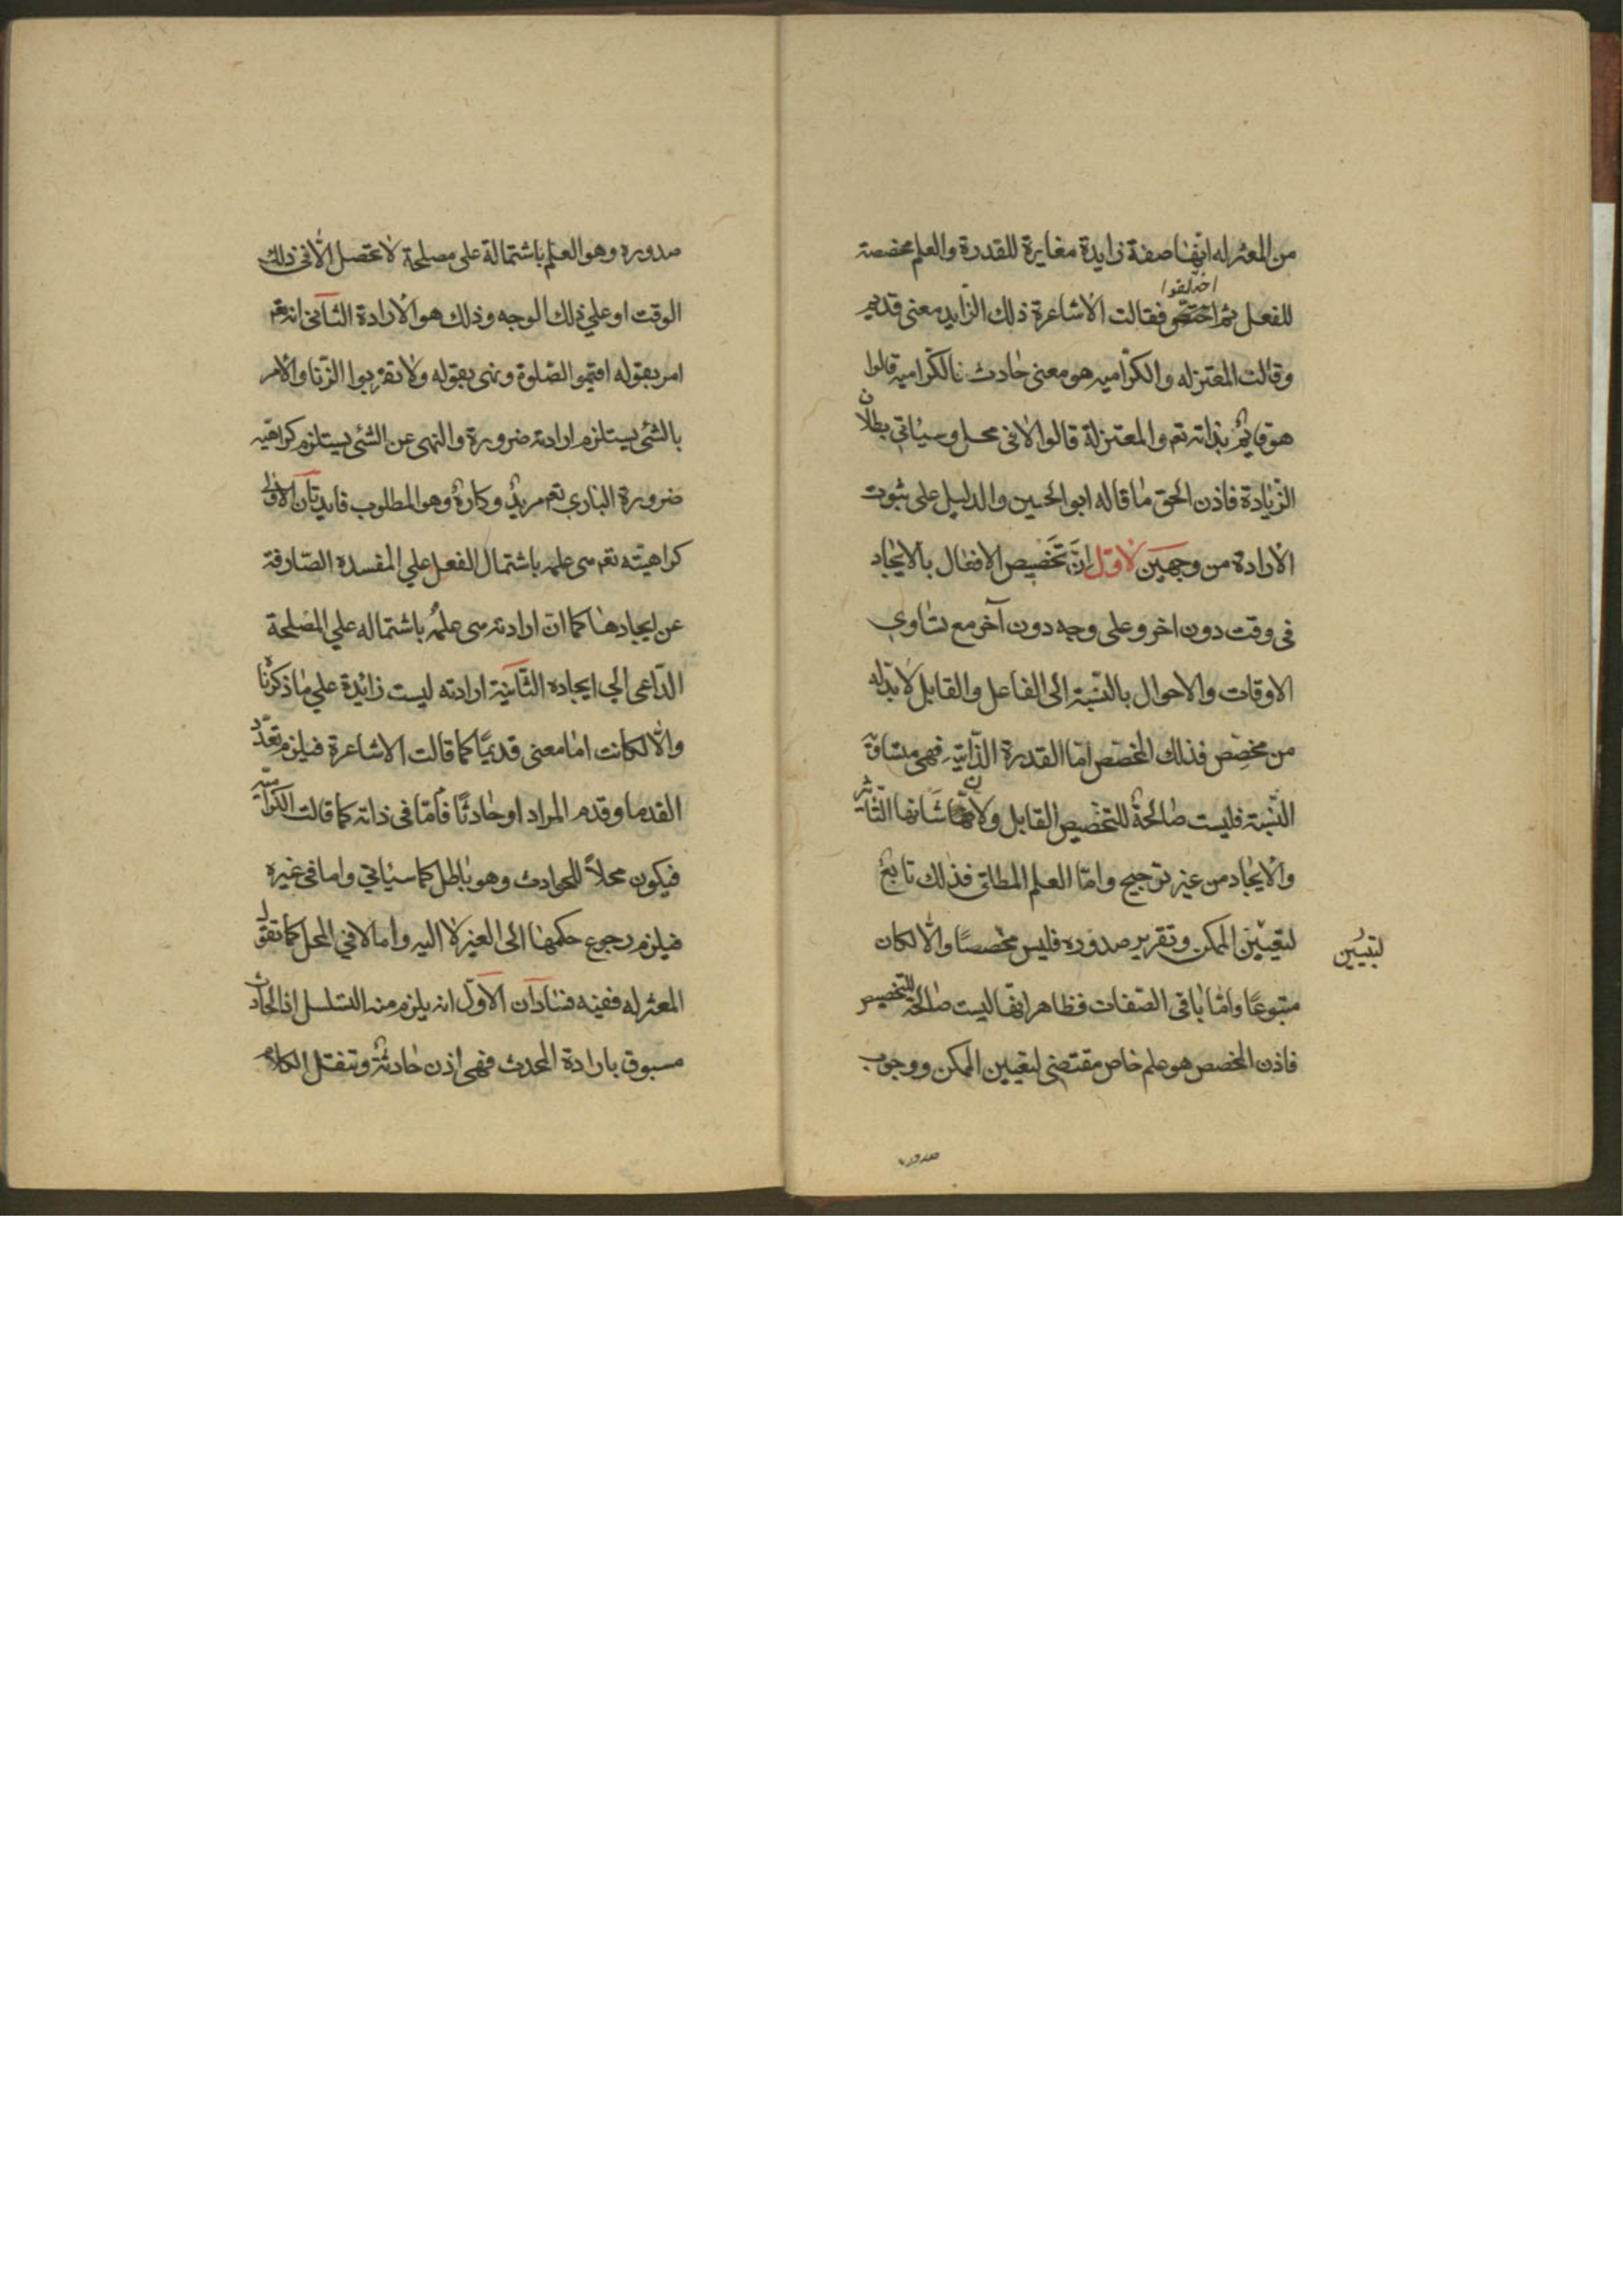 من المعتزله انّها صفة زايدة مغايرة للقدرة والعلم مخصصة
اختلفوا
للفعل ثم فقالت الاشاعرة ذلك الزّايد معنى قديم
وقالت المعتزله والكرّاميه هو معنى حادث فالكرّاميه قالوا
هو قايمٌ بذاته تعم والمعتزلة قالوا لا فى محل وسياتي بطلان
الزّيادة فاذن الحق ما قاله ابو الحسين والدليل على ثبوت
الارادة من وجهين الاوّل انّ تخصيص الافعال بالايجاد
فى وقت دون اخر وعلى وجه دون آخر مع تساوي
الاوقات والاحوال بالنسبة الى الفاعل والقابل لا بدّ له
من مخصِّص فذلك المخصّص امّا القدرة الذّاتيّة فهى متساوية
النّسبة فليست صالحةٌ للتخصيص القابل ولانّ شانها التّاثير
والايجاد من غير ترجيح وامّا العلم المطلق فذلك تابعٌ
لتعيين الممكن وتقرير صدوره فليس مخصصًا والّا لكان
لتبيين
متبوعًا وامّا باقى الصّفات فظاهر انّها ليست صالحة للتخصيص
فاذن المخصص هو علم خاص مقتضى لتعيين الممكن ووجوب
صدوره
صدوره وهو العلم باشتمالة على مصلحة لا تحصل الّا فى ذلك
الوقت او علي ذلك الوجه وذلك هو الارادة الثّانى انه تعم
امر بقوله اقيموا الصّلوة ونهى بقوله ولا تقربوا الزّنا والامر
بالشئ يستلزم ارادته ضرورة والنهى عن الشئ يستلزم كراهيّته
ضرورة البارى تعم مريدٌ وكارهٌ وهو المطلوب فايدتان الاولى
كراهيّته تعم هى علمه باشتمال الفعل علي المفسدة الصّارفة
عن ايجادها كما انّ ارادته هى علمهُ باشتماله علي المصلحة
الدّاعى الي ايجاده الثّانية ارادته ليست زائدة علي ما ذكرنا
والّا لكانت اما معنى قديمًا كما قالت الاشاعرة فيلزم تعدّد
القدما وقدم المراد او حادثًا فامّا فى ذاته كما قالت الكرّاميّة
فيكون محلاً للحوادث وهو باطل كما سياتي واما فى غيره
فيلزم رجوع حكمها الى الغير لا اليه واما لا في المحل كما تقول
المعتزله ففيه فسادان الاوّل انه يلزم منه التسلسل اذ الحادث
مسبوق بارادة المحدث فهى اذن حادثةٌ وتنقل الكلام